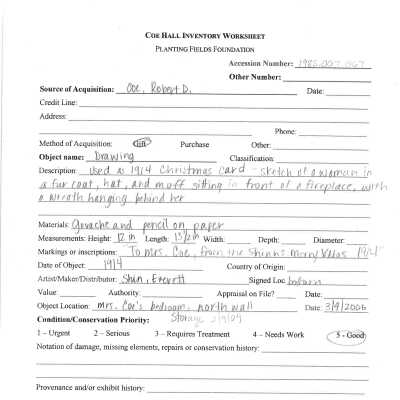 COE HALL INVENTORY WORKSHEET
PLANTING FIELDS FOUNDATION
Accession Number:
Other Number:
Source of Acquisition: Coe, Robert D. Date:
Credit Line:
Address:
Phone:
Method of Acquisition: Gift Purchase Other:
Object name: Drawing Classification
Description used as 1914 Christmas card - sketch of a woman in
a fur coat, hat, and muff sitting in front of a fireplace, with
a wreath hanging behind her
Materials: Gouache and pencil on paper
Measurements: Height: 12 in Length: Width: Depth: Diameter:
Markings or inscriptions: To Mrs. Coe, from the Shinns Merry Xmas
Date of Object: 1914 Country of Origin:
Artist/Maker/Distributor: Shin, Everett Signed Loc
Value: Authority Appraisal on File? Date:
Object Location: Mrs. Coe's bedroom, north wall Date: 3/9/2006
Condition/Conservation Priority: Storage
1 – Urgent 2 – Serious 3 – Requires Treatment 4 – Needs Work 5 - Good
Notation of damage, missing elements, repairs or conservation history:
Provenance and/or exhibit history: